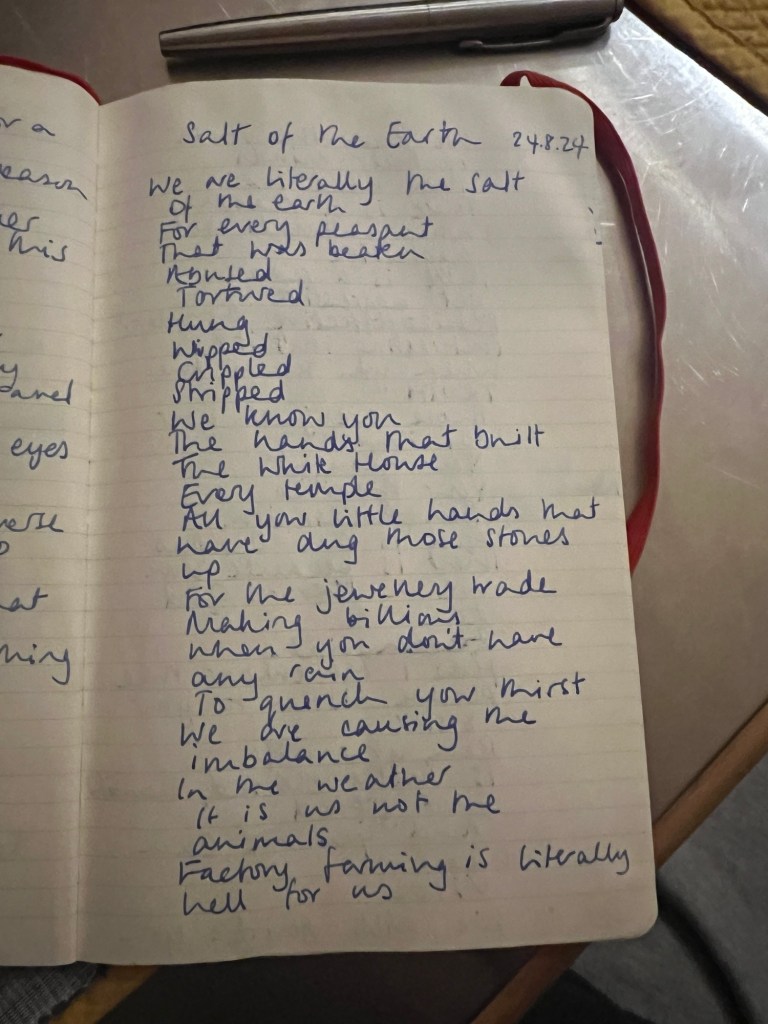 or a
eason
his
y
eyes
at
ning
Salt of the Earth 24.8.24
We are literally the salt
Of the earth
For every peasant
That was beaten
Abused
Tortured
Hung
Wipped
Crippled
Stripped
We know you
The hands that built
The White House
Every temple
All you little hands that
have dug those stones
up
For the jewellery trade
Making billions
when you don't have
any rain
To quench your thirst
We are causing the
imbalance
In the weather
It is us not the
animals
Factory farming is literally
hell for us